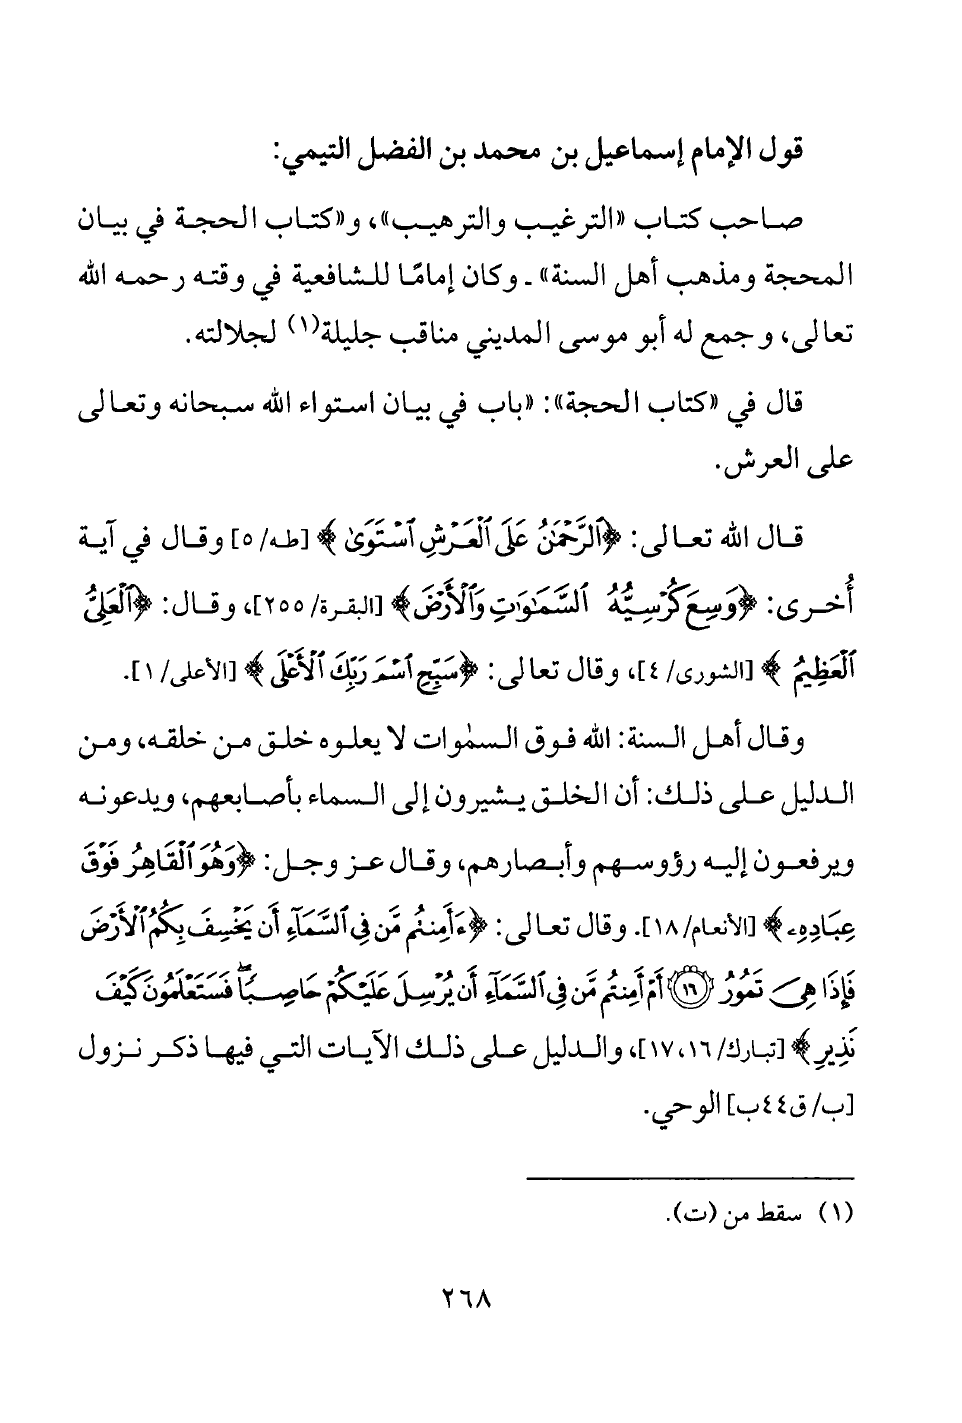 قول الإمام إسماعيل بن محمد بن الفضل التيمي:
صاحب كتاب «الترغيب والترهيب»، و«كتاب الحجة في بيان
المحجة ومذهب أهل السنة» ـ وكان إمامًا للشافعية في وقته رحمه الله
تعالى، وجمع له أبو موسى المديني مناقب جليلة(١) لجلالته.
قال في «كتاب الحجة»: «باب في بيان استواء الله سبحانه وتعالى
على العرش.
قال الله تعالى: ﴿ٱلرَّحْمَٰنُ عَلَى ٱلْعَرْشِ ٱسْتَوَىٰ﴾ [طه/ ٥] وقال في آية
أُخرى: ﴿وَسِعَ كُرْسِيُّهُ ٱلسَّمَٰوَٰتِ وَٱلْأَرْضَ﴾ [البقرة/ ٢٥٥]، وقال: ﴿ٱلْعَلِيُّ
ٱلْعَظِيمُ﴾ [الشورى/ ٤]، وقال تعالى: ﴿سَبِّحِ ٱسْمَ رَبِّكَ ٱلْأَعْلَى﴾ [الأعلى/ ١].
وقال أهل السنة: الله فوق السمٰوات لا يعلوه خلق من خلقه، ومن
الدليل على ذلك: أن الخلق يشيرون إلى السماء بأصابعهم، ويدعونه
ويرفعون إليه رؤوسهم وأبصارهم، وقال عز وجل: ﴿وَهُوَ ٱلْقَاهِرُ فَوْقَ
عِبَادِهِۦ﴾ [الأنعام/ ١٨]. وقال تعالى: ﴿ءَأَمِنتُم مَّن فِى ٱلسَّمَآءِ أَن يَخْسِفَ بِكُمُ ٱلْأَرْضَ
فَإِذَا هِىَ تَمُورُ ١٦ أَمْ أَمِنتُم مَّن فِى ٱلسَّمَآءِ أَن يُرْسِلَ عَلَيْكُمْ حَاصِبًا ۖ فَسَتَعْلَمُونَ كَيْفَ
نَذِيرِ﴾ [تبارك/ ١٦، ١٧]، والدليل على ذلك الآيات التي فيها ذكر نزول
[ب/ ق٤٤ب] الوحي.
(١) سقط من (ت).
٢٦٨